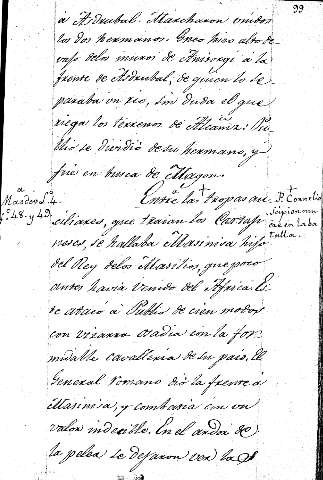 99
à Asdrubal. Marcharon unidos
los dos hermanos. Gneo hizo alto de
vajo delos muros de Anitorgi à la
frente de Asdrubal, de quien lo se
paraba un rio, sin duda el que
riega los terrenos de Alcañiz: Pu
blio se dividió de su hermano, y
fué en busca de Magon.
Entre las tropas au
xiliares, que traian los Cartagi
neses, se hallaba Masinisa hijo
del Rey delos Masilios, que poco
antes havia venido del Africa. Es
te atacó a Publio de cien modos
con vizarra osadia con la for
midable cavalleria de su pais. El
General romano dió la frente á
Masinisa, y combatia con un
valor indecible. En el ardor de
la pelea se dejaron ver la
a
Mandeo L.º 4.
c.º 48. y 49.
P. Cornelio
Scipion mu
ere en la ba
talla.